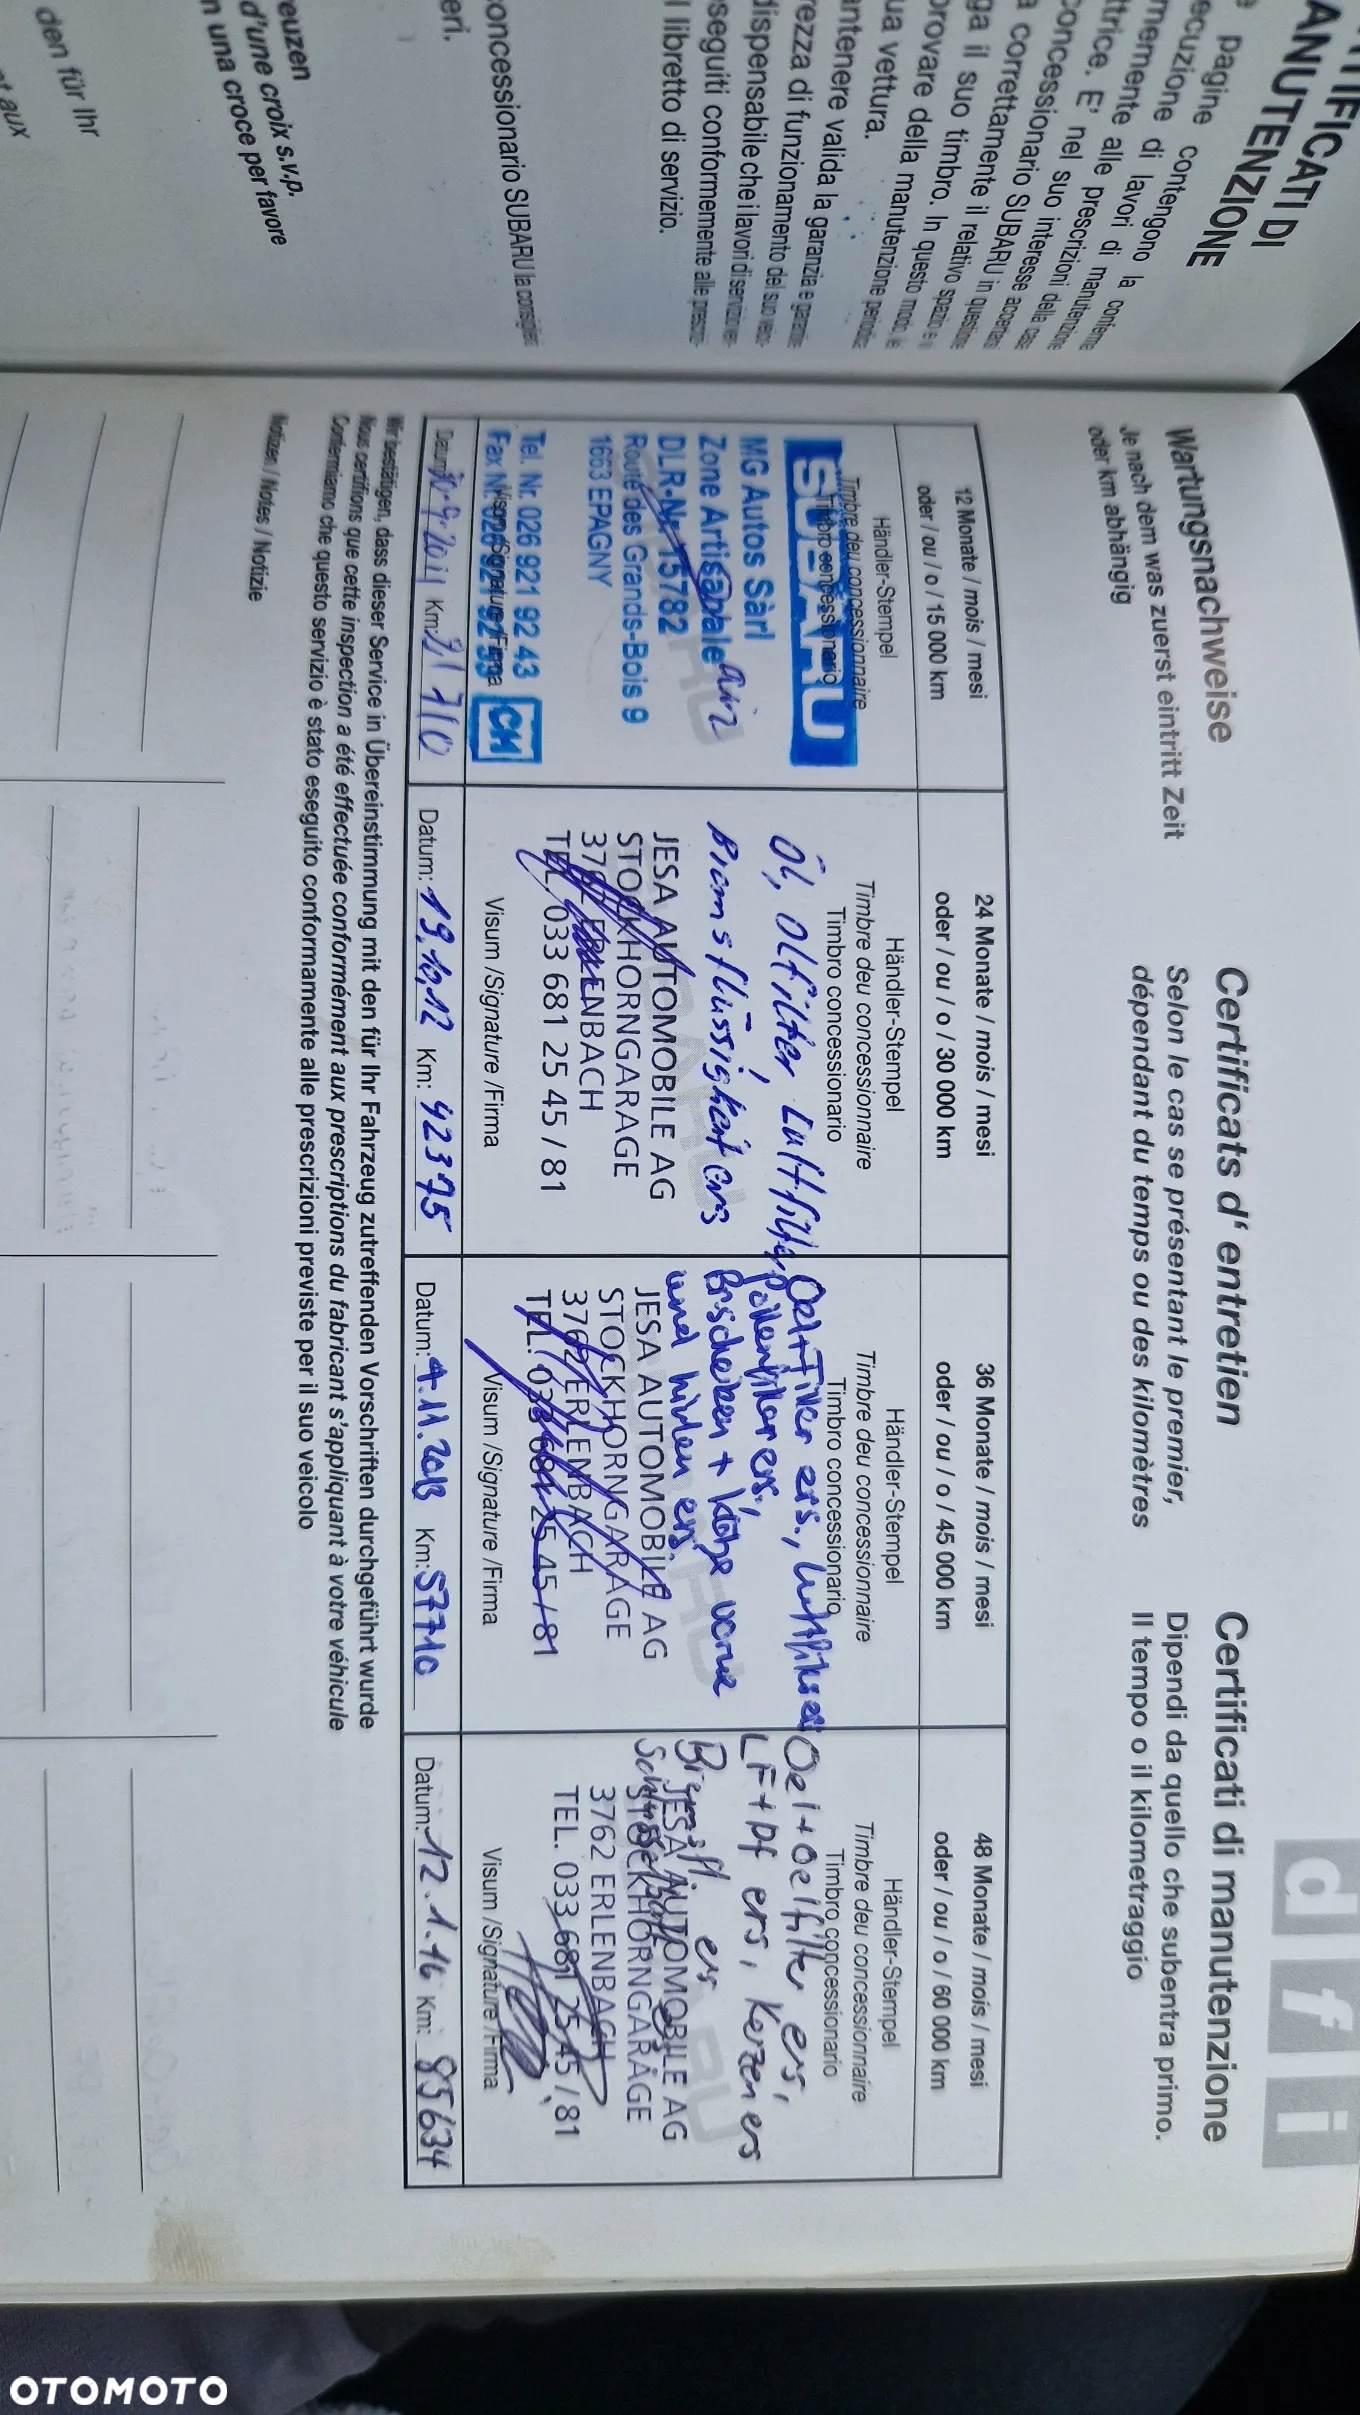 TIFICATI DI
ANUTENZIONE
pagine contengono la conferma
ecuzione di lavori di manutenzione
memente alle prescrizioni della casa
ttrice. E' nel suo interesse accertarsi
concessionario SUBARU in questione
a correttamente il relativo spazio e vi
ga il suo timbro. In questo modo, le
provare della manutenzione periodica
ua vettura.
antenere valida la garanzia e garantire
rezza di funzionamento del suo veico-
dispensabile che i lavori di servizio ven-
seguiti conformemente alle prescrizi-
l libretto di servizio.
oncessionario SUBARU la consiglierà
eri.
reuzen
d'une croix s.v.p.
n una croce per favore
den für Ihr
t aux
Wartungsnachweise
Je nach dem was zuerst eintritt Zeit
oder km abhängig
Certificats d' entretien
Selon le cas se présentant le premier,
dépendant du temps ou des kilomètres
Certificati di manutenzione
Dipendi da quello che subentra primo.
Il tempo o il kilometraggio
d f i
12 Monate / mois / mesi
oder / ou / o / 15 000 km
Händler-Stempel
Timbre deu concessionnaire
Timbro concessionario
SUBARU
MG Autos Sàrl
Zone Artisanale
DLR-Nr. 15782
Route des Grands-Bois 9
1663 EPAGNY
Tel. Nr. 026 921 92 43
Fax Nr. 026 921 92 53
CH
Visum /Signature /Firma
Datum: 30.9.2011 Km: 31 710
24 Monate / mois / mesi
oder / ou / o / 30 000 km
Händler-Stempel
Timbre deu concessionnaire
Timbro concessionario
Öl, Ölfilter, Luftfilter,
Bremsflüssigkeit ers
JESA AUTOMOBILE AG
STOCKHORNGARAGE
3762 ERLENBACH
TEL. 033 681 25 45 / 81
Visum /Signature /Firma
Datum: 19.10.12 Km: 42375
36 Monate / mois / mesi
oder / ou / o / 45 000 km
Händler-Stempel
Timbre deu concessionnaire
Timbro concessionario
Oel+Filter ers., Luftfilter ers
Pollenfilter ers.,
Bscheiben + Klötze vorne
und hinten ers.
JESA AUTOMOBILE AG
STOCKHORNGARAGE
3762 ERLENBACH
TEL. 033 681 25 45 / 81
Visum /Signature /Firma
Datum: 4.11.2013 Km: 57710
48 Monate / mois / mesi
oder / ou / o / 60 000 km
Händler-Stempel
Timbre deu concessionnaire
Timbro concessionario
Oel + Oelfilter ers,
LF + Pf ers, Kerzen ers
Bremsfl. ers
JESA AUTOMOBILE AG
STOCKHORNGARAGE
3762 ERLENBACH
TEL. 033 681 25 45 / 81
Visum /Signature /Firma
Datum: 12.1.16 Km: 85634
Wir bestätigen, dass dieser Service in Übereinstimmung mit den für Ihr Fahrzeug zutreffenden Vorschriften durchgeführt wurde
Nous certifions que cette inspection a été effectuée conformément aux prescriptions du fabricant s'appliquant à votre véhicule
Confermiamo che questo servizio è stato eseguito conformamente alle prescrizioni previste per il suo veicolo
Notizen / Notes / Notizie
OTOMOTO